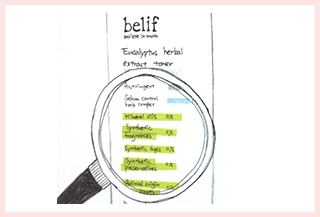 belif
believe in truth
Eucalyptus herbal
extract toner
Astringent
Sebum control
herb complex
Mineral oils 0%
Synthetic
fragrances 0%
Synthetic dyes 0%
Synthetic
preservatives 0%
Animal origin
0%